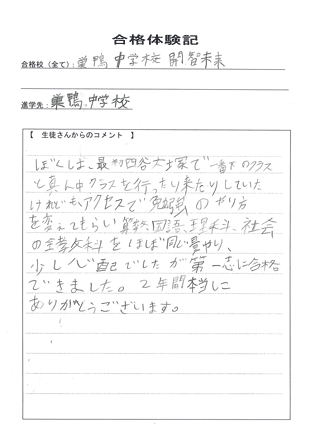 合格体験記
合格校（全て）：巣鴨中学校 開智未来
進学先：巣鴨中学校
【 生徒さんからのコメント 】
ぼくは、最初四谷大塚で一番下のクラス
と真ん中クラスを行ったり来たりしていた
けれども、アクセスで勉強のやり方
を変えてもらい算数、国語、理科、社会
の全教科をほぼ同じ量やり、
少し心配でしたが第一志に合格
できました。2年間本当に
ありがとうございます。